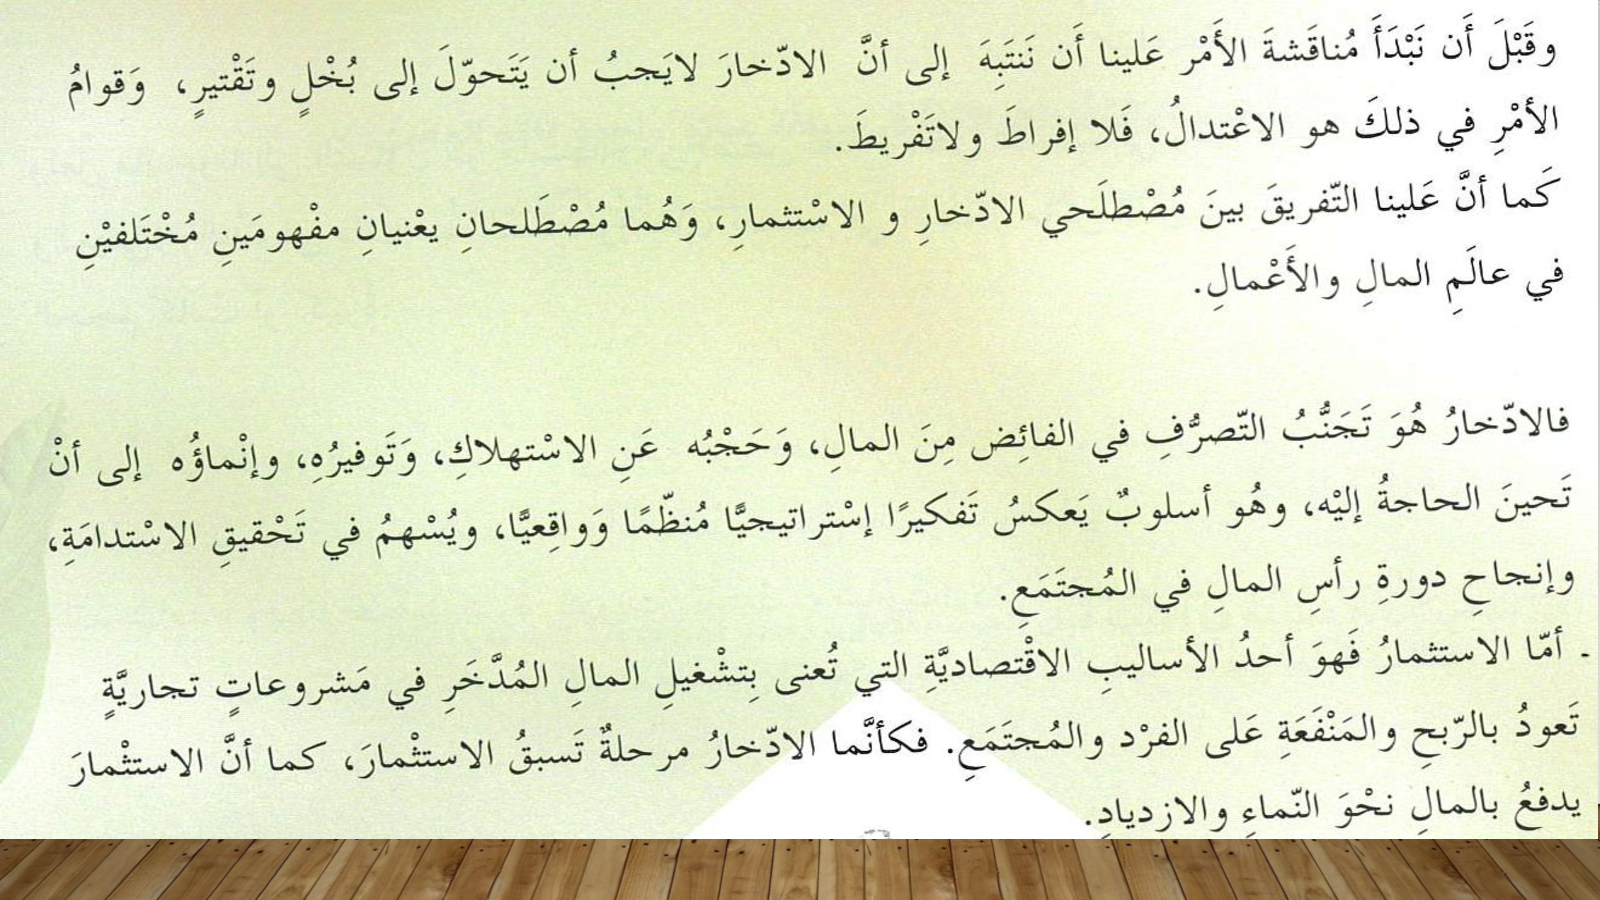 وقَبْلَ أَن نَبْدَأَ مُناقَشةَ الأَمْر عَلينا أَن نَنتَبِهَ إلى أنَّ الادّخارَ لايَجبُ أن يَتَحوّلَ إلى بُخْلٍ وتَقْتيرٍ، وَقوامُ
الأمْرِ في ذلكَ هو الاعْتدالُ، فَلا إفراطَ ولاتَفْريطَ.
كَما أنَّ عَلينا التّفريقَ بينَ مُصْطلَحي الادّخارِ و الاسْتثمارِ، وَهُما مُصْطَلحانِ يعْنيانِ مفْهومَينِ مُخْتَلفيْنِ
في عالَمِ المالِ والأَعْمالِ.
فالادّخارُ هُوَ تَجَنُّبُ التّصرُّفِ في الفائِض مِنَ المالِ، وَحَجْبُه عَنِ الاسْتهلاكِ، وَتَوفيرُهِ، وإنْماؤُه إلى أنْ
تَحينَ الحاجةُ إليْه، وهُو أسلوبٌ يَعكسُ تَفكيرًا إسْتراتيجيًّا مُنظّمًا وَواقِعيًّا، ويُسْهمُ في تَحْقيقِ الاسْتدامَةِ،
وإنجاحِ دورةِ رأسِ المالِ في المُجتَمَعِ.
- أمّا الاستثمارُ فَهوَ أحدُ الأساليبِ الاقْتصاديَّةِ التي تُعنى بِتشْغيلِ المالِ المُدَّخَرِ في مَشروعاتٍ تجاريَّةٍ
تَعودُ بالرّبحِ والمَنْفَعَةِ عَلى الفرْد والمُجتَمَعِ. فكأنَّما الادّخارُ مرحلةٌ تَسبقُ الاستثْمارَ، كما أنَّ الاستثْمارَ
يدفعُ بالمالِ نحْوَ النّماءِ والازديادِ.